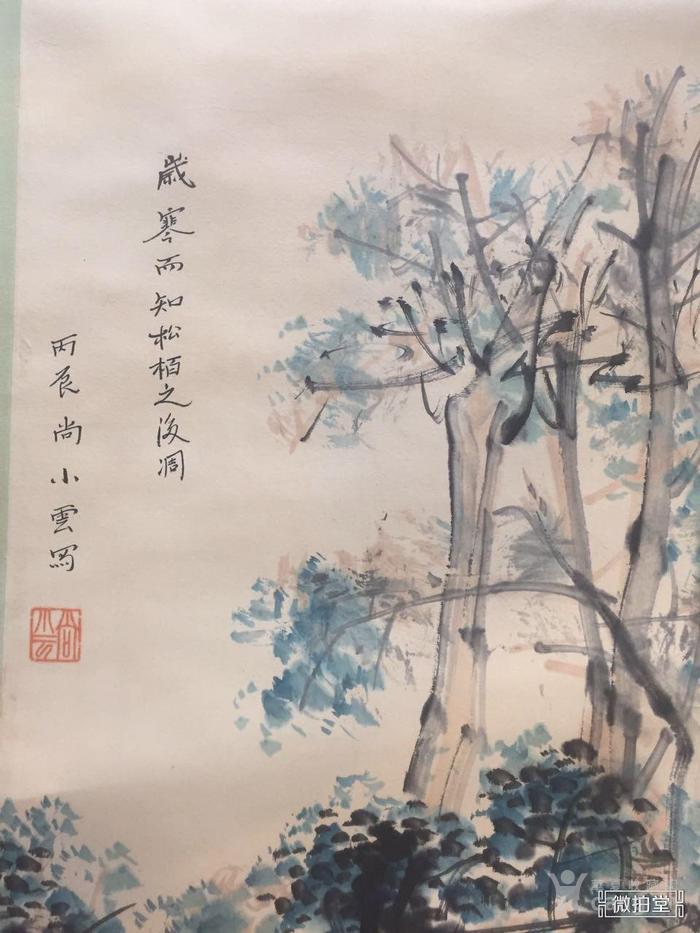 歳寒而知松栢之後凋
丙辰尚小雲寫
尚小云
微拍堂